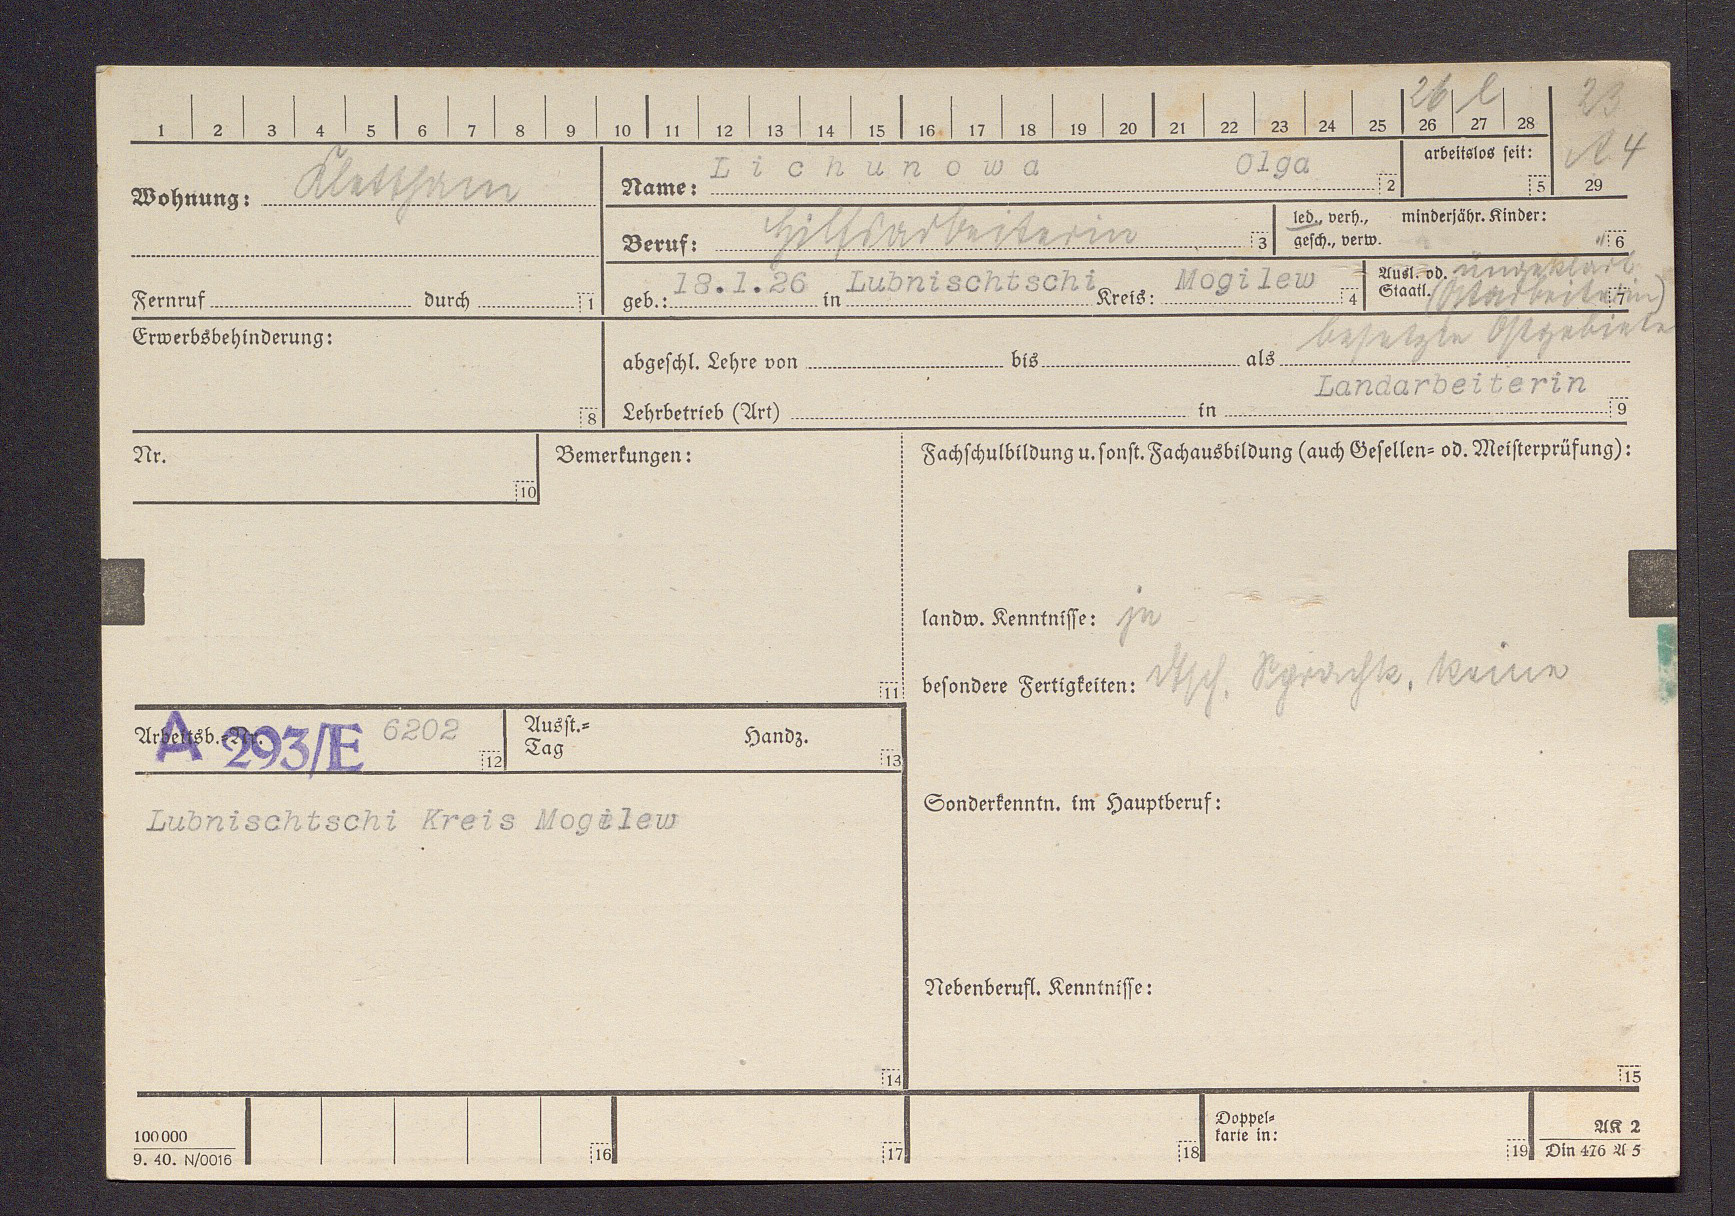 1 2 3 4 5 6 7 8 9 10 11 12 13 14 15 16 17 18 19 20 21 22 23 24 25 26 27 28 29
26 l 23
A 4
Wohnung: Klettham
Name: Lichunowa Olga 2
arbeitslos seit: 5
Beruf: Hilfsarbeiterin 3
led., verh., gesch., verw.
minderjähr. Kinder: 6
Fernruf durch 1
geb.: 18.1.26 in Lubnischtschi Kreis: Mogilew 4
Ausl. od. Staatl. ungeklärt (Ostarbeiterin) 7
besetzte Ostgebiete
Erwerbsbehinderung: 8
abgeschl. Lehre von bis als
Landarbeiterin
Lehrbetrieb (Art) in 9
Nr. 10
Bemerkungen: 11
Fachschulbildung u. sonst. Fachausbildung (auch Gesellen- od. Meisterprüfung):
landw. Kenntnisse: ja
besondere Fertigkeiten: dtsch. Sprachk. keine
Arbeitsb.-Nr. A 293/E 6202 12
Ausst.-Tag Handz. 13
Lubnischtschi Kreis Mogilew
14
Sonderkenntn. im Hauptberuf:
Nebenberufl. Kenntnisse:
15
100000
9. 40. N/0016
16 17 18
Doppelkarte in: 19
AK 2
Din 476 A 5